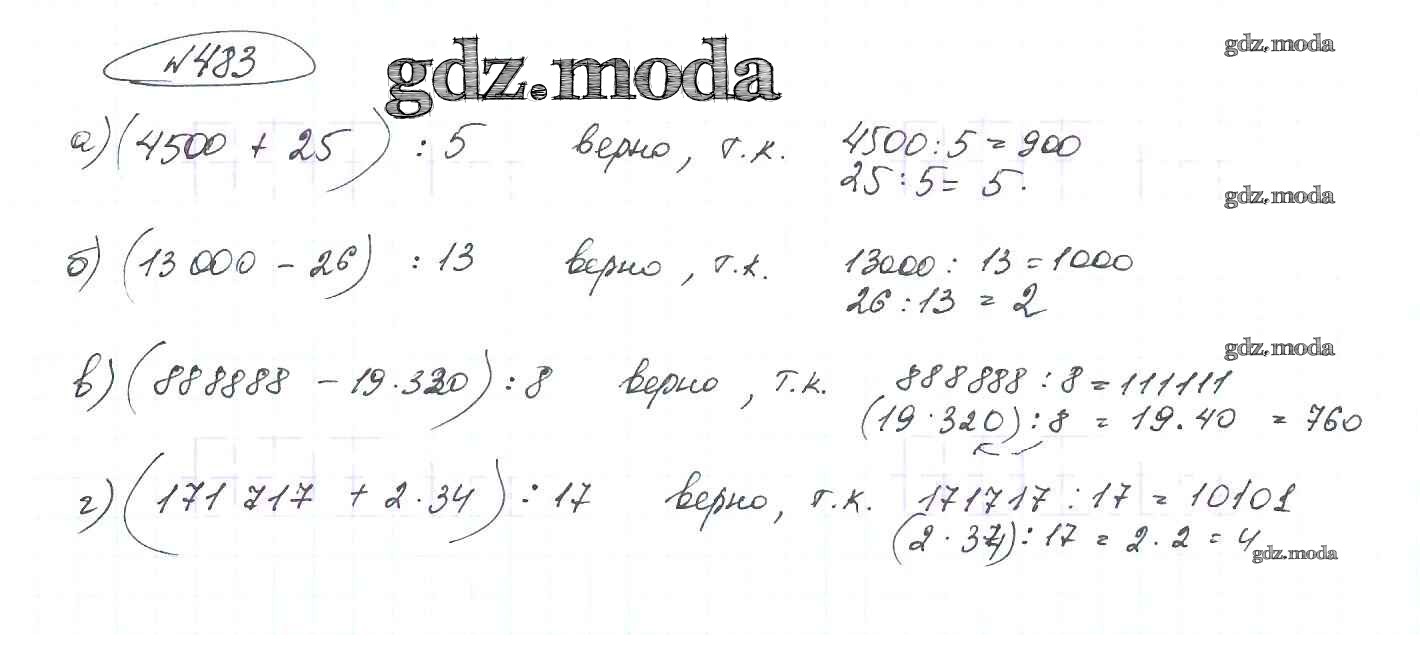 №483 gdz.moda
gdz.moda
а) (4500 + 25) : 5 верно, т.к. 4500:5=900
25:5= 5.
gdz.moda
б) (13 000 - 26) : 13 верно, т.к. 13000 : 13 = 1000
26:13 = 2
gdz.moda
в) (888888 - 19·320) : 8 верно, т.к. 888888 : 8 = 111111
(19·320) : 8 = 19·40 = 760
г) (171 717 + 2·34) : 17 верно, т.к. 171717 : 17 = 10101
(2·34) : 17 = 2·2 = 4
gdz.moda